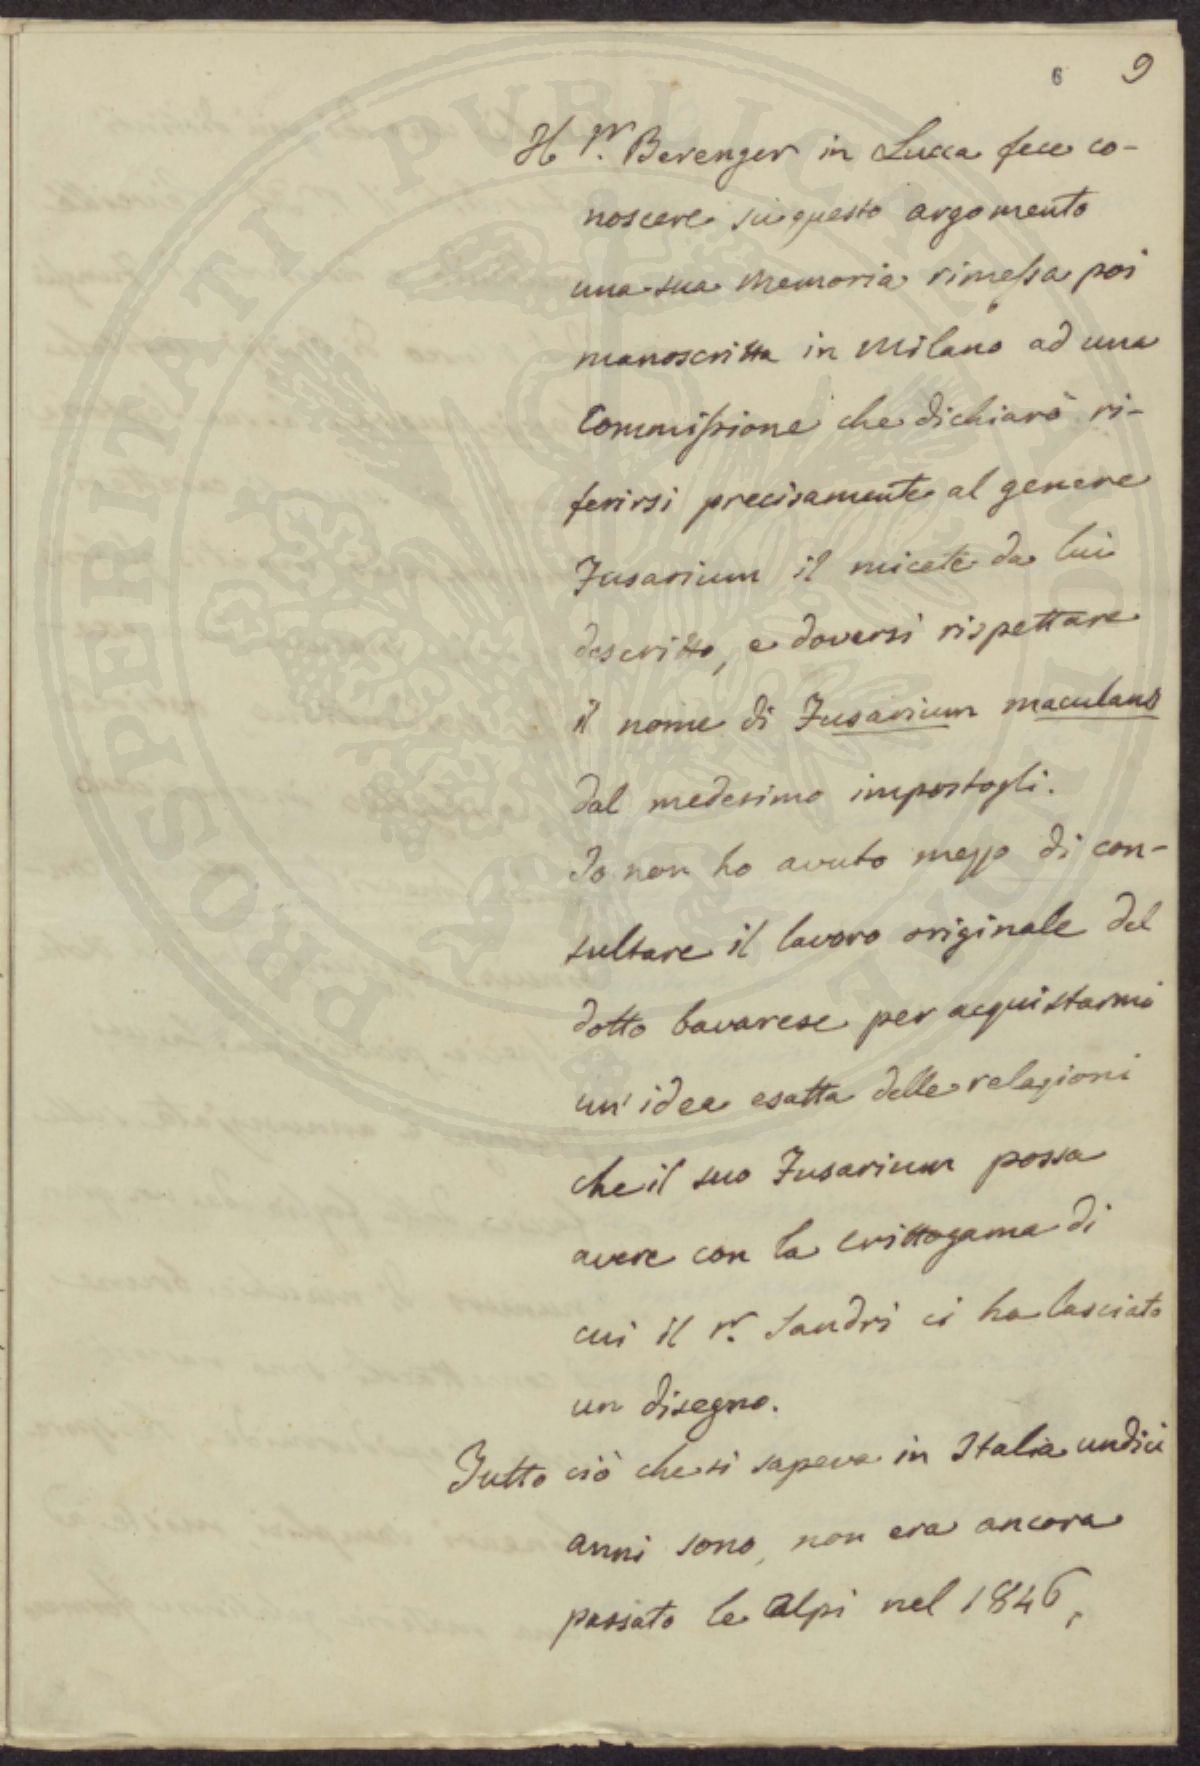 6 9
Il Sr. Berenger in Lucca fece co-
noscere su questo argomento
una sua Memoria rimessa poi
manoscritta in Milano ad una
Commissione che dichiarò ri-
ferirsi precisamente al genere
Fusarium il micete da lui
descritto, e doversi rispettare
il nome di Fusarium maculans
dal medesimo impostogli.
Io non ho avuto mezzo di con-
sultare il lavoro originale del
dotto bavarese per acquistarmi
un' idea esatta delle relazioni
che il suo Fusarium possa
avere con la crittogama di
cui il Sr. Sandri ci ha lasciato
un disegno.
Tutto ciò che si sapeva in Italia undici
anni sono, non era ancora
passato le Alpi nel 1846,
PROSPERITATI PUBLICAE